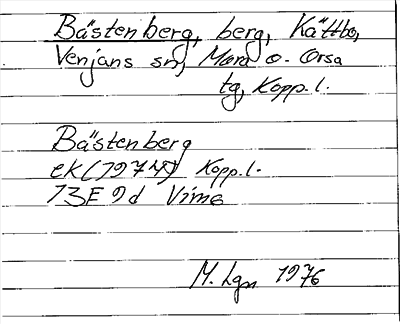 Bästenberg, berg, Kättbo,
Venjans sn, Mora o. Orsa
tg, Kopp. l.
Bästenberg
ek (1974) Kopp. l.
13E 9d Vimo
M. Lgn 1976